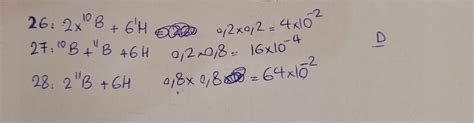 26: 2x¹⁰B + 6¹H 0,2x0,2 = 4x10⁻²
27: ¹⁰B + ¹¹B + 6H 0,2x0,8 = 16x10⁻⁴
D
28: 2¹¹B + 6H 0,8x0,8 = 64x10⁻²